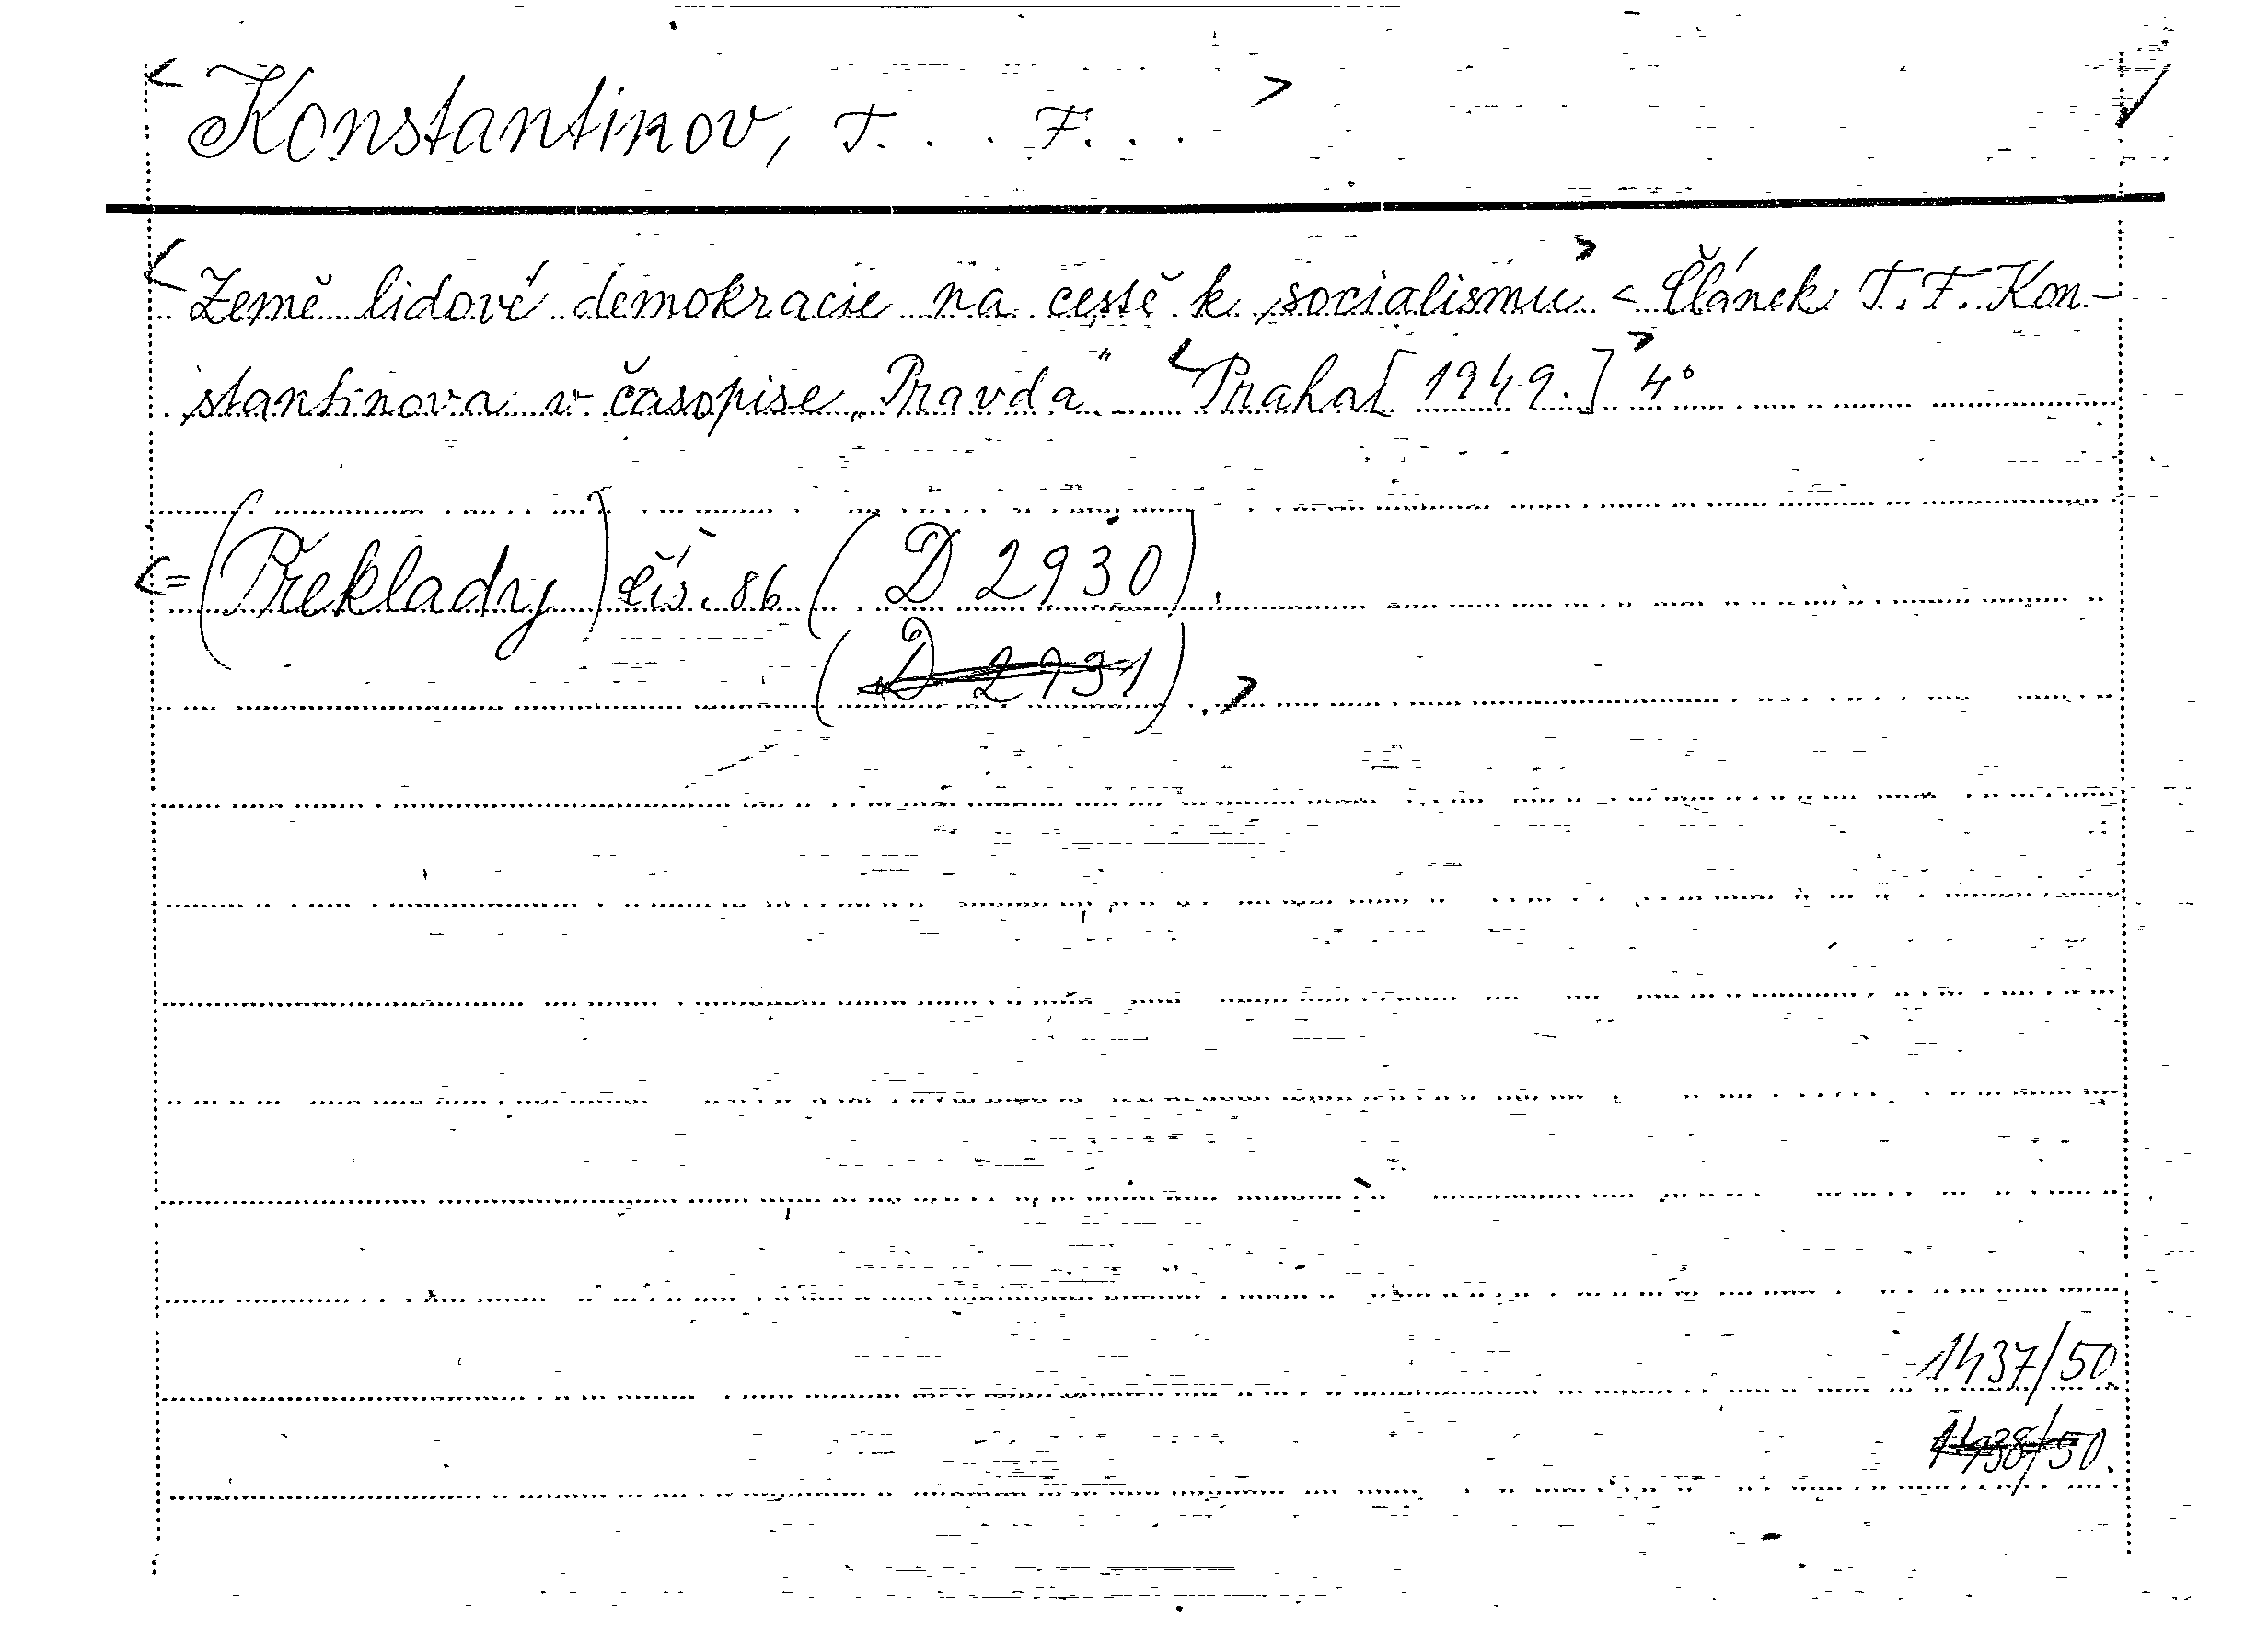 < Konstantinov, T. . . F. . . >
< Země lidové demokracie na cestě k socialismu > < Článek T. F. Kon-
stantinova v časopise „Pravda“ < Praha [ 1949. ] > 4°
< = (Překlady) čís. 86 ( D 2930 ).
( D 2931 ). >
1437/50
1438/50.